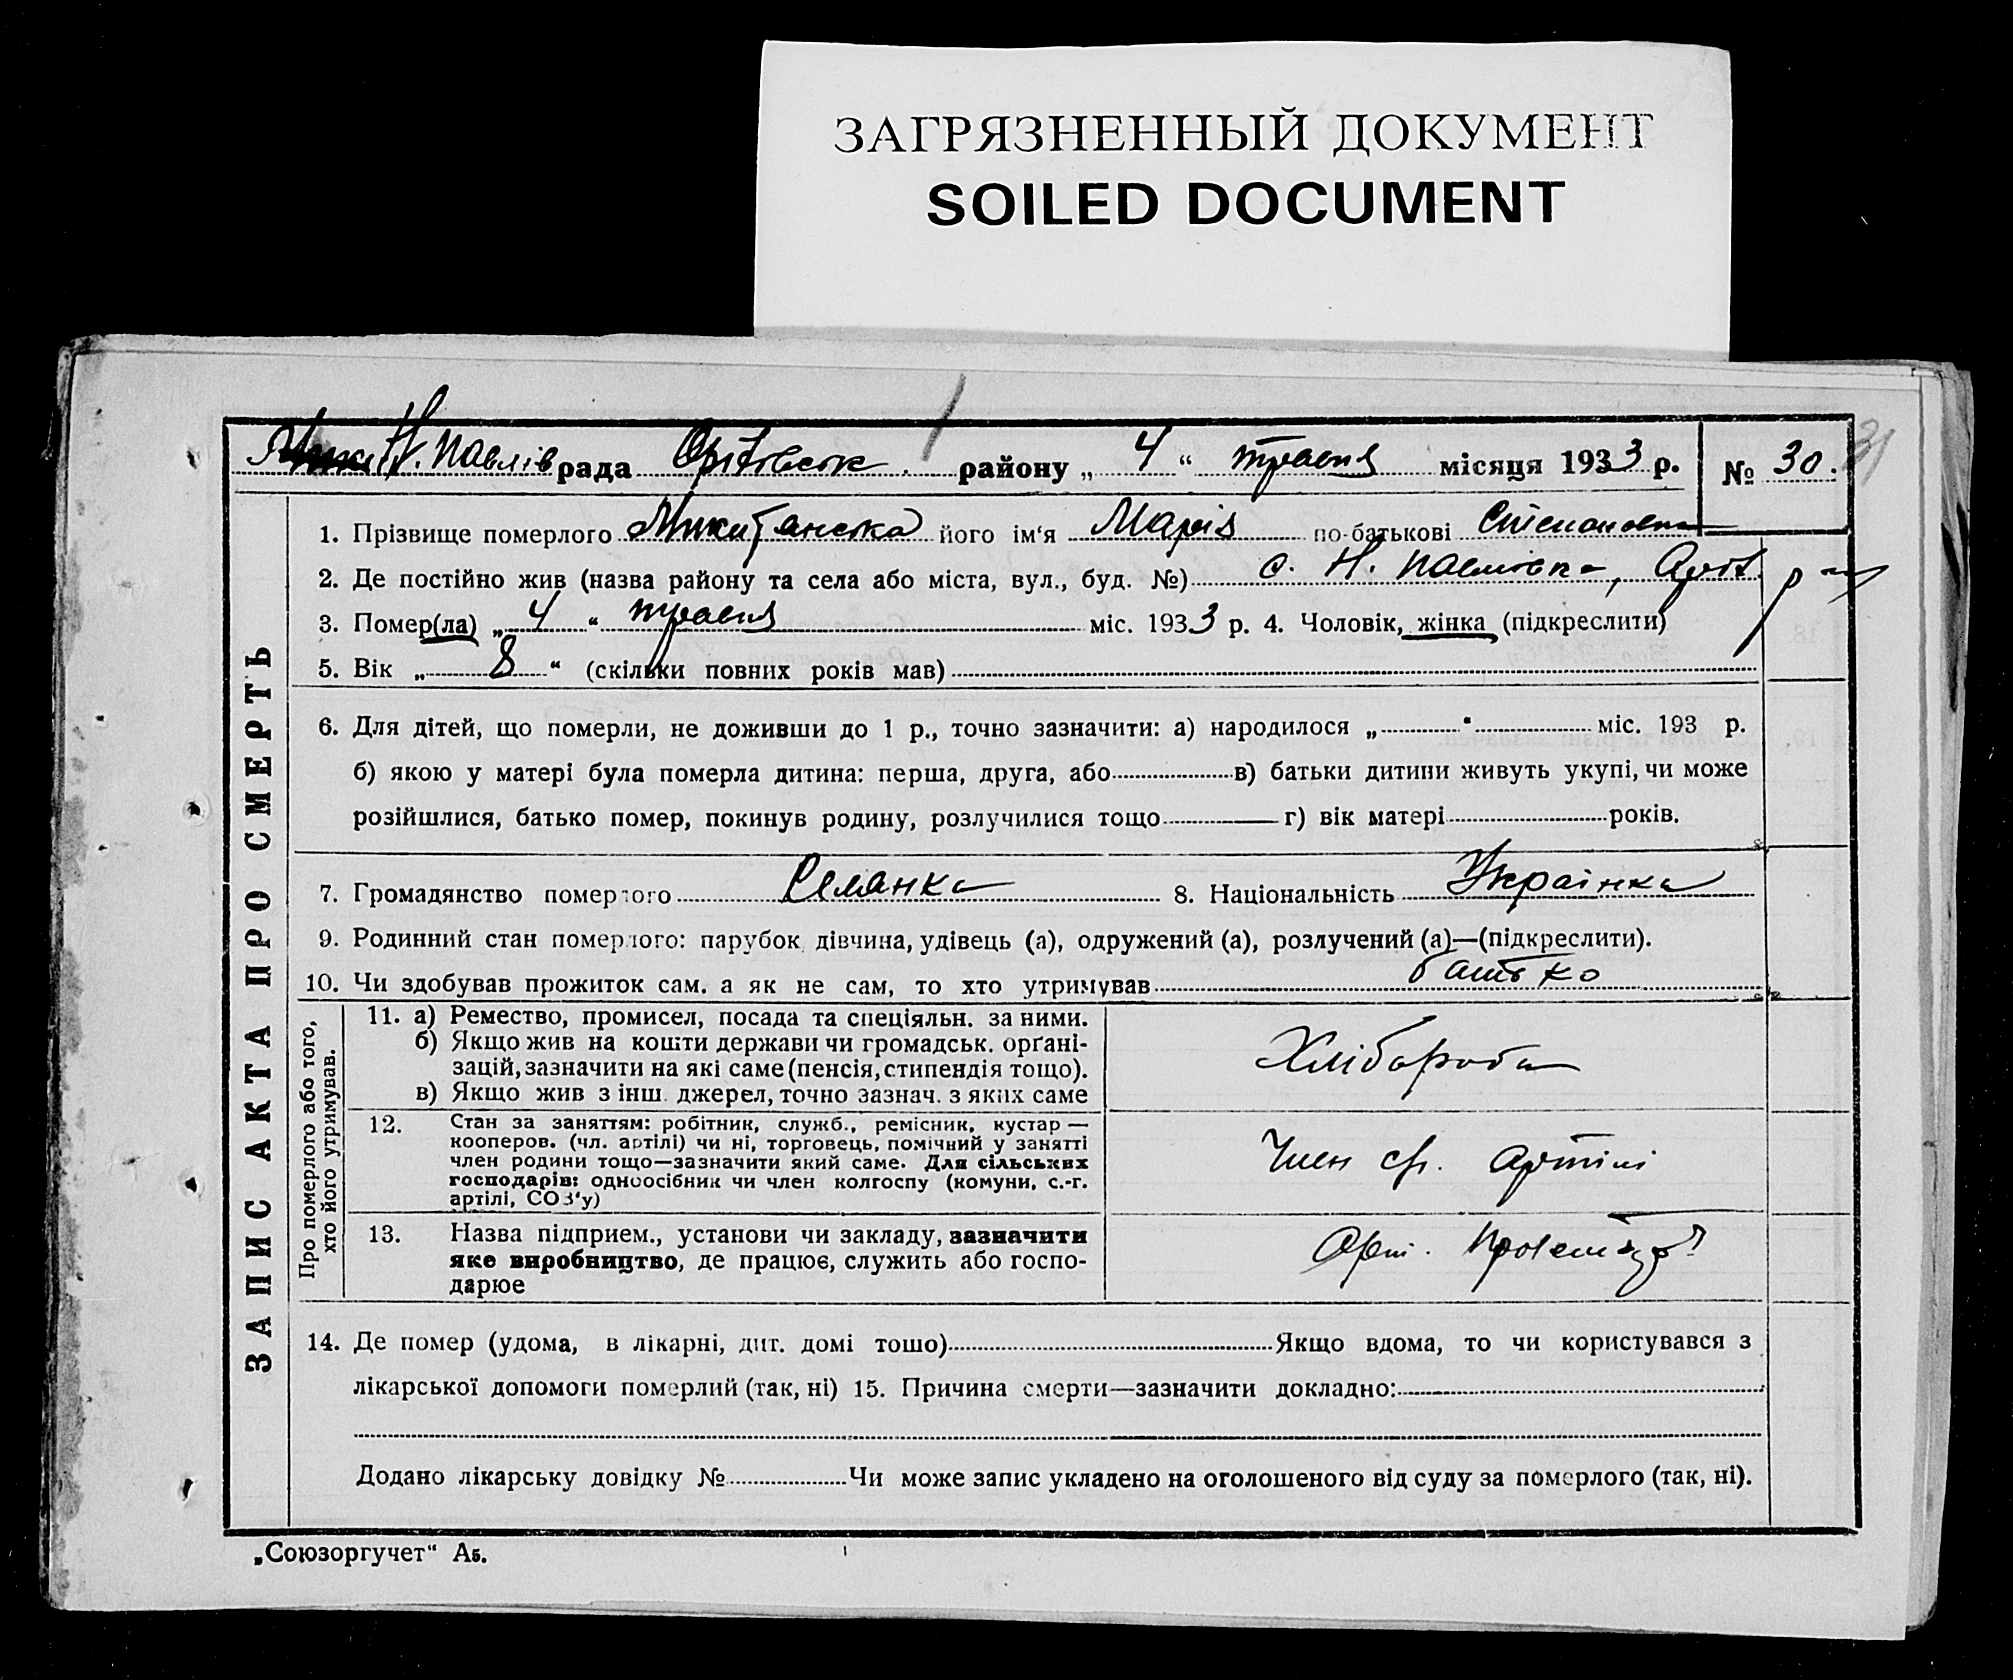 ЗАГРЯЗНЕННЫЙ ДОКУМЕНТ
SOILED DOCUMENT
Н. Павлів рада районy „ 4 “ травня місяця 1933 р. № 30.
31
1. Прізвище померлого Микитанська його ім‘я Марія по-батькові Степановна
2. Де постійно жив (назва району та села або міста, вул., буд. №) с. Н. Павловка,
3. Помер(ла) „ 4 “ травня міс. 1933 р. 4. Чоловік, жінка (підкреслити)
5. Вік „ 8 “ (скільки повних років мав)
6. Для дітей, що померли, не доживши до 1 р., точно зазначити: а) народилося „ “ міс. 193 р.
б) якою у матері була померла дитина: перша, друга, або в) батьки дитини живуть укупі, чи може
розійшлися, батько помер, покинув родину, розлучилися тощо г) вік матері років.
7. Громадянство померлого Селянка 8. Національність Українка
9. Родинний стан померлого: парубок дівчина, удівець (а), одружений (а), розлучений (а)—(підкреслити).
10. Чи здобував прожиток сам. а як не сам, то хто утримував батько
ЗАПИС АКТА ПРО СМЕРТЬ
Про померлого або того,
хто його утримував.
11. а) Ремество, промисел, посада та спеціяльн. за ними.
б) Якщо жив на кошти держави чи громадськ. орґані-
зацій, зазначити на які саме (пенсія, стипендія тощо).
в) Якщо жив з інш. джерел, точно зазнач. з яких саме
Хлібороб
12. Стан за заняттям: робітник, служб., ремісник, кустар —
кооперов. (чл. артілі) чи ні, торговець, помічний у занятті
член родини тощо—зазначити який саме. Для сільських
господарів: одноосібник чи член колгоспу (комуни, с.-г.
артілі, СОЗ‘у)
Член артілі
13. Назва підприєм., установи чи закладу, зазначити
яке виробництво, де працює, служить або госпо-
дарює
Арт.
14. Де помер (удома, в лікарні, дит. домі тошо) Якщо вдома, то чи користувався з
лікарської допомоги померлий (так, ні) 15. Причина смерти—зазначити докладно:
Додано лікарську довідку № Чи може запис укладено на оголошеного від суду за померлого (так, ні).
„Союзоргучет“ А5.